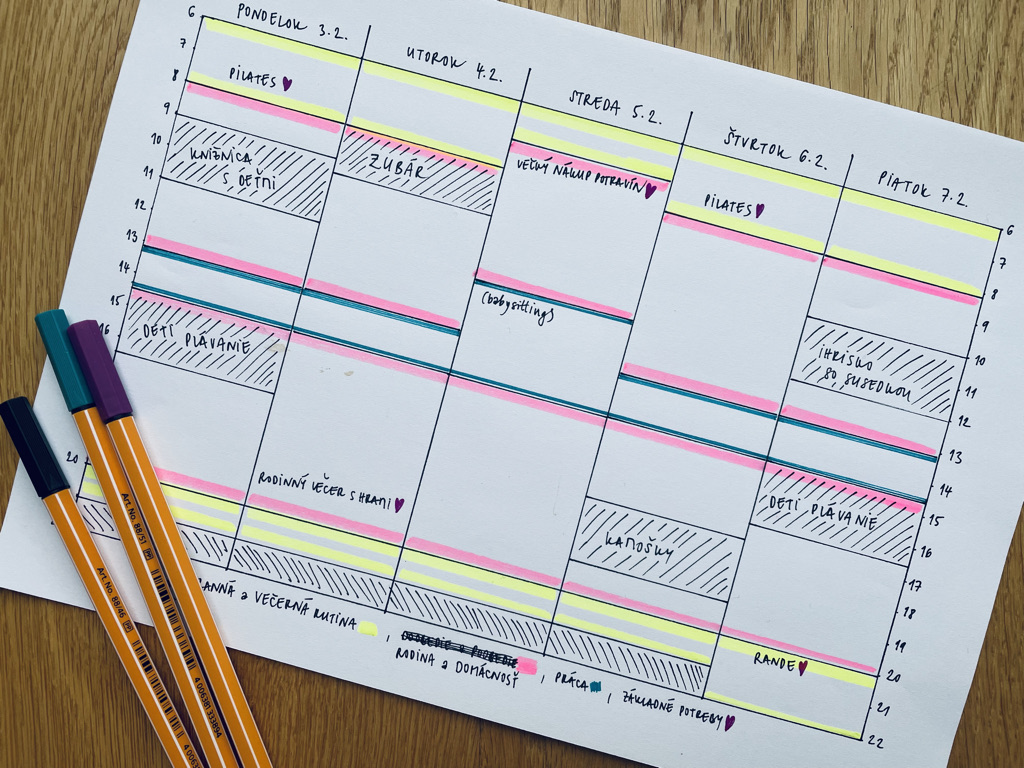 PONDELOK 3.2.
UTOROK 4.2.
STREDA 5.2.
ŠTVRTOK 6.2.
PIATOK 7.2.
6
7
8
9
10
11
12
13
14
15
16
20
PILATES
KNIŽNICA
S DEŤMI
DETI PLÁVANIE
ZUBÁR
RODINNÝ VEČER S HRAMI
VEĽKÝ NÁKUP POTRAVÍN
(babysitting)
PILATES
KAMOŠKY
IHRISKO
SO SUSEDKOU
DETI PLÁVANIE
RANDE
6
7
8
9
10
11
12
13
14
15
16
17
18
19
20
21
22
ANNÁ a VEČERNÁ RUTINA ,
RODINA a DOMÁCNOSŤ , PRÁCA , ZÁKLADNÉ POTREBY
Art.No. 88/51
Art.No. 88/46
4 006381 333894